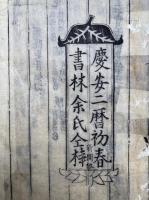 慶安二暦初春
書林余氏仝梓